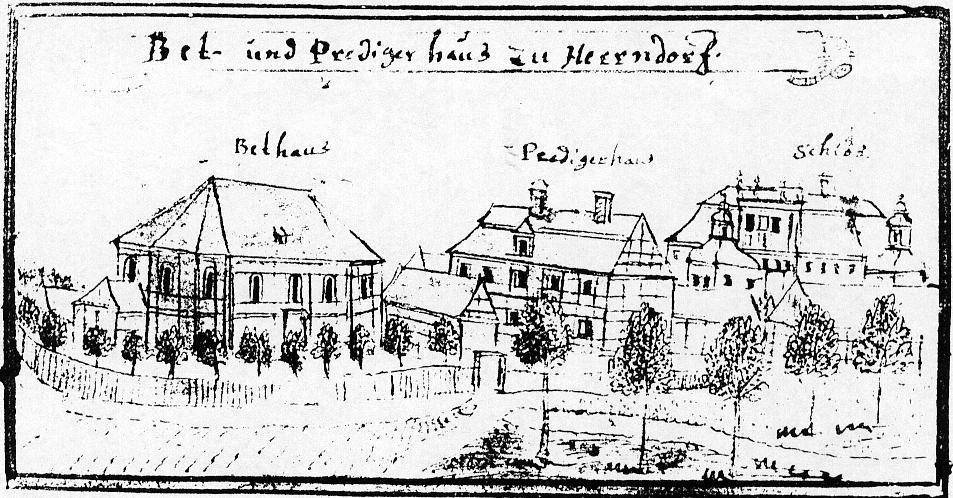 Bet- und Prediger haus zu Herrndorf.
Bethaus
Predigerhaus
Schlos.